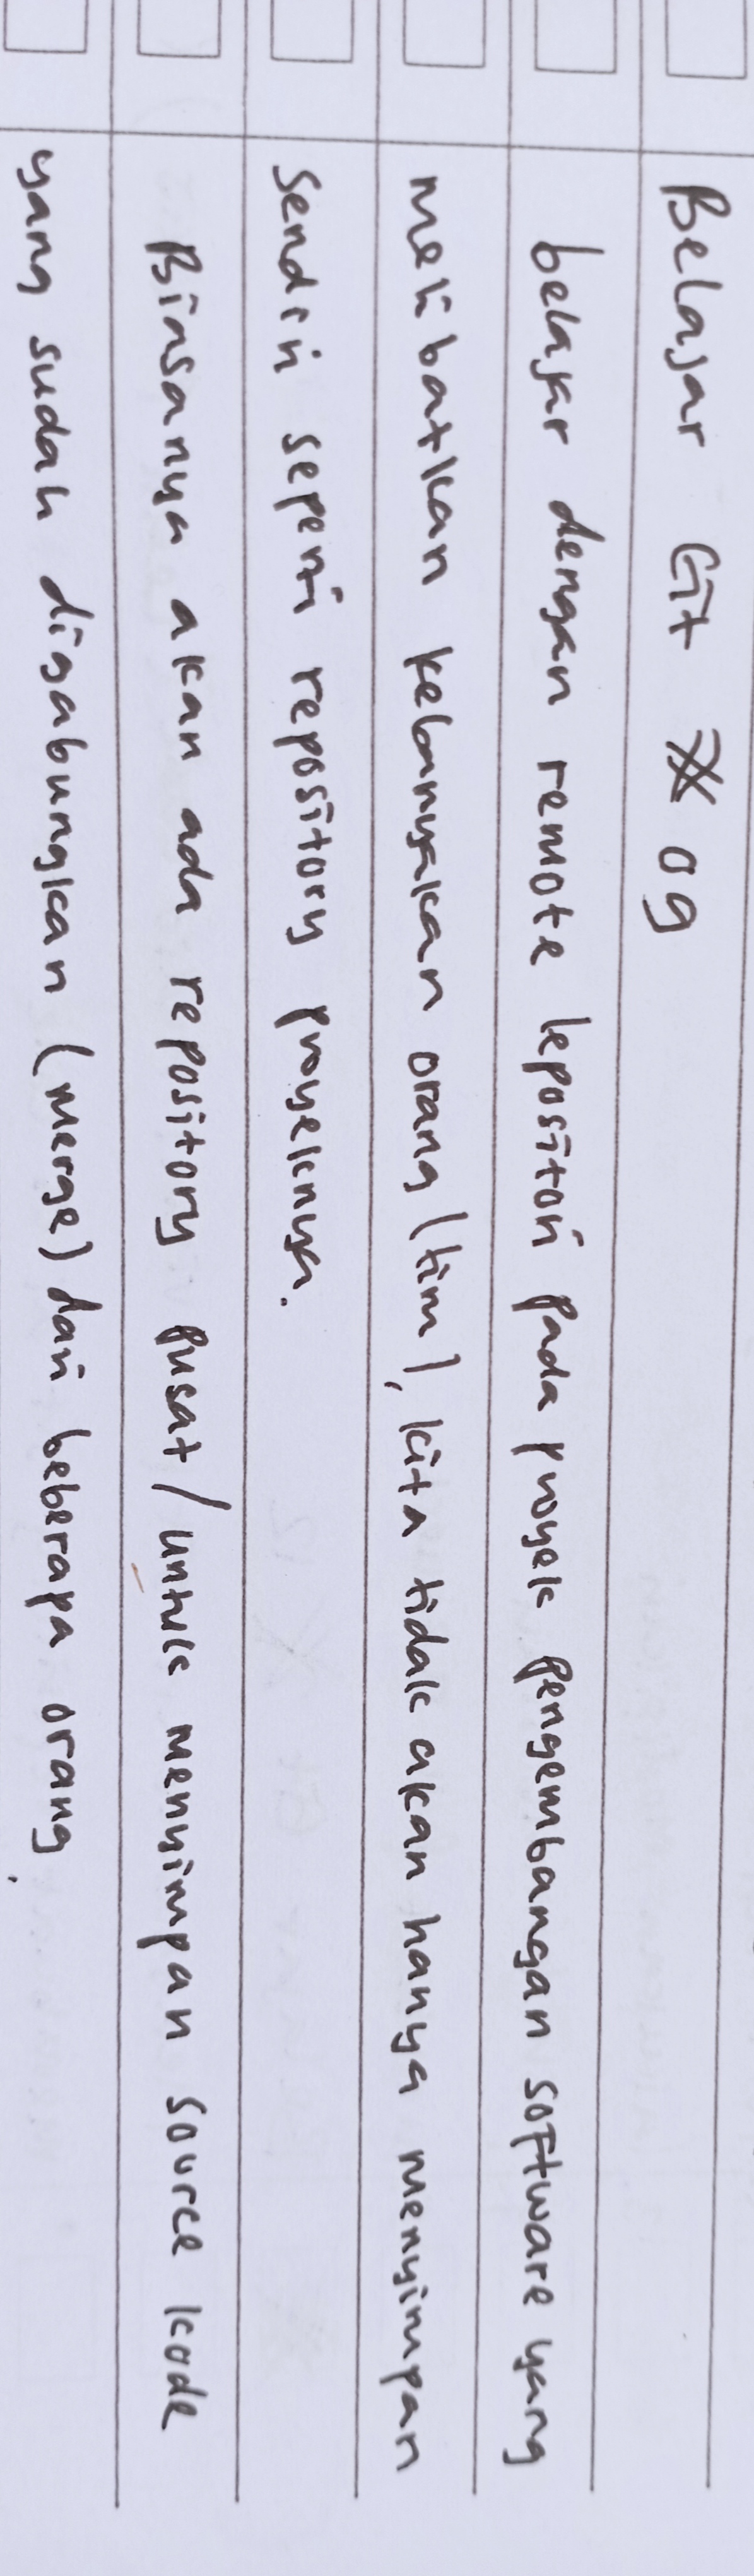 Belajar Git 09
belajar dengan remote lepositori pada proyek pengembangan software yang
melibatkan kebanyakan orang (tim), kita tidak akan hanya menyimpan
sendiri seperti repository proyeknya.
Biasanya akan ada repository pusat / untuk menyimpan source kode
yang sudah digabungkan (merge) dari beberapa orang.